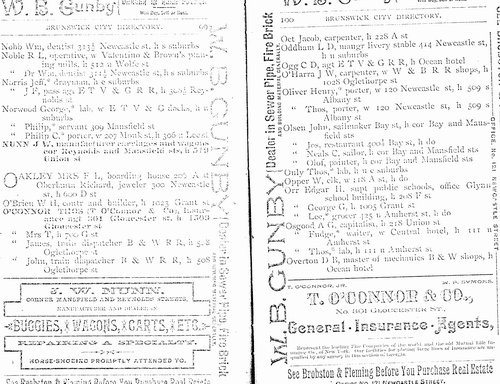 W. B. Gunby
BRUNSWICK CITY DIRECTORY.
Nobb Wm, dentist 313½ Newcastle st, h s suburbs
Noble R L, operative, w Valentino & Brown's planing mills, h 512 w Wolfe st
" Dr Wm, dentist 311½ Newcastle st, h s suburbs
Norris Jeff,* drayman, h s suburbs
" J F, pass agt E T V & G R R, h 503 Reynolds st
Norwood George,* lab, w E T V & G docks, h n suburbs
" Philip,* servant 509 Mansfield st
" Philip C,* porter, w 207 Monk st, h
NUNN J W, manufacturer carriages and wagons
cor Reynolds and Mansfield sts, h 519
Union st
OAKLEY MRS F L, boarding house 206 A st
Oberlaus Richard, jeweler 300 Newcastle
st, h 600 D st
O'Brien W H, contr and builder, h 1023 Grant st
O'CONNOR THOS (T O'Connor & Co), insurance agt 301 Gloucester st, h 1503
Gloucester st
" Mrs T, h 700 G st
" James, train dispatcher B & W R R, h 508
Oglethorpe st
" John, train dispatcher B & W R R, h 508
Oglethorpe st
J. W. NUNN,
CORNER MANSFIELD AND REYNOLDS STREETS,
MANUFACTURER AND DEALER IN
BUGGIES, WAGONS, CARTS, ETC.
REPAIRING A SPECIALTY.
HORSE-SHOEING PROMPTLY ATTENDED TO.
See Brobston & Fleming Before You Purchase Real Estate
W. B. GUNBY
Dealer in Sewer Pipe, Fire Brick
W. B. Gunby
100 BRUNSWICK CITY DIRECTORY.
Oet Jacob, carpenter, h 228 A st
Oddham L D, mangr livery stable 414 Newcastle st,
h n suburbs
Ogg C D, agt E T V & G R R, h Ocean hotel
O'Harra J W, carpenter, w W & B R R shops, h
1008 Oglethorpe st
Oliver Henry,* porter, w 120 Newcastle st, h 509 s
Albany st
" Thos, porter, w 120 Newcastle st, h 509 s
Albany st
Olsen John, sailmaker Bay st, h cor Bay and Mansfield sts
" Jos, restaurant 0001 Bay st, h do
" Neals C, sailor, h cor Bay and Mansfield sts
" Olof, pointer, h cor Bay and Mansfield sts
Only Thos,* lab, h n e suburbs
Opper W, clk, w 128 A st, h do
Orr Edgar H, supt public schools, office Glynn
school building, h 208 F st
" George G, h 1005 Grant st
" Lee,* grocer 425 n Amherst st, h do
Osgood A G, capitalist, h 218 Union st
" Fudge,* waiter, w Central hotel, h 111 n
Amherst st
" Thos,* lab, h 111 n Amherst st
Overton D B, master of mechanics B & W shops, h
Ocean hotel
T. O'CONNOR, JR. W. P. SYMONS.
T. O'CONNOR & CO.,
No. 301 GLOUCESTER ST.,
General Insurance Agents,
See Brobston & Fleming Before You Purchase Real Estate
OFFICE, NO. 121 NEWCASTLE STREET.
W. B. GUNBY
Dealer in Sewer Pipe, Fire Brick